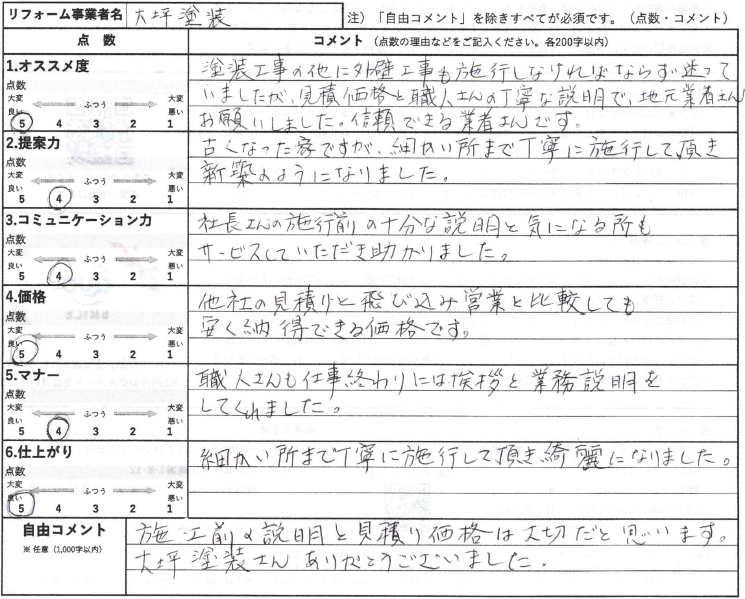 リフォーム事業者名 大坪塗装 注）「自由コメント」を除きすべてが必須です。（点数・コメント）
点 数 コメント（点数の理由などをご記入ください。各200字以内）
1.オススメ度
点数
大変 ふつう 大変
良い 悪い
5 4 3 2 1
塗装工事の他に外壁工事も施行しなければならず迷って
いましたが、見積価格と職人さんの丁寧な説明で、地元業者さんに
お願いしました。信頼できる業者さんです。
2.提案力
点数
大変 ふつう 大変
良い 悪い
5 4 3 2 1
古くなった家ですが、細かい所まで丁寧に施行して頂き
新築のようになりました。
3.コミュニケーション力
点数
大変 ふつう 大変
良い 悪い
5 4 3 2 1
社長さんの施行前の十分な説明と気になる所も
サービスしていただき助かりました。
4.価格
点数
大変 ふつう 大変
良い 悪い
5 4 3 2 1
他社の見積りと飛び込み営業と比較しても
安く納得できる価格です。
5.マナー
点数
大変 ふつう 大変
良い 悪い
5 4 3 2 1
職人さんも仕事終わりには挨拶と業務説明を
してくれました。
6.仕上がり
点数
大変 ふつう 大変
良い 悪い
5 4 3 2 1
細かい所まで丁寧に施行して頂き綺麗になりました。
自由コメント
※ 任意（1,000字以内）
施工前の説明と見積り価格は大切だと思います。
大坪塗装さんありがとうございました。